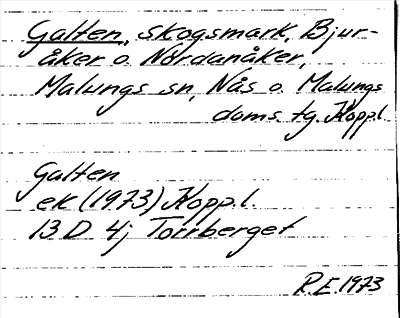 Galten, skogsmark, Bjur-
åker o. Nordanåker,
Malungs sn, Nås o. Malungs
doms. tg. Kopp.l.
Galten
ek (1973) Kopp.l.
13 D 4j Torrberget
R.E. 1973